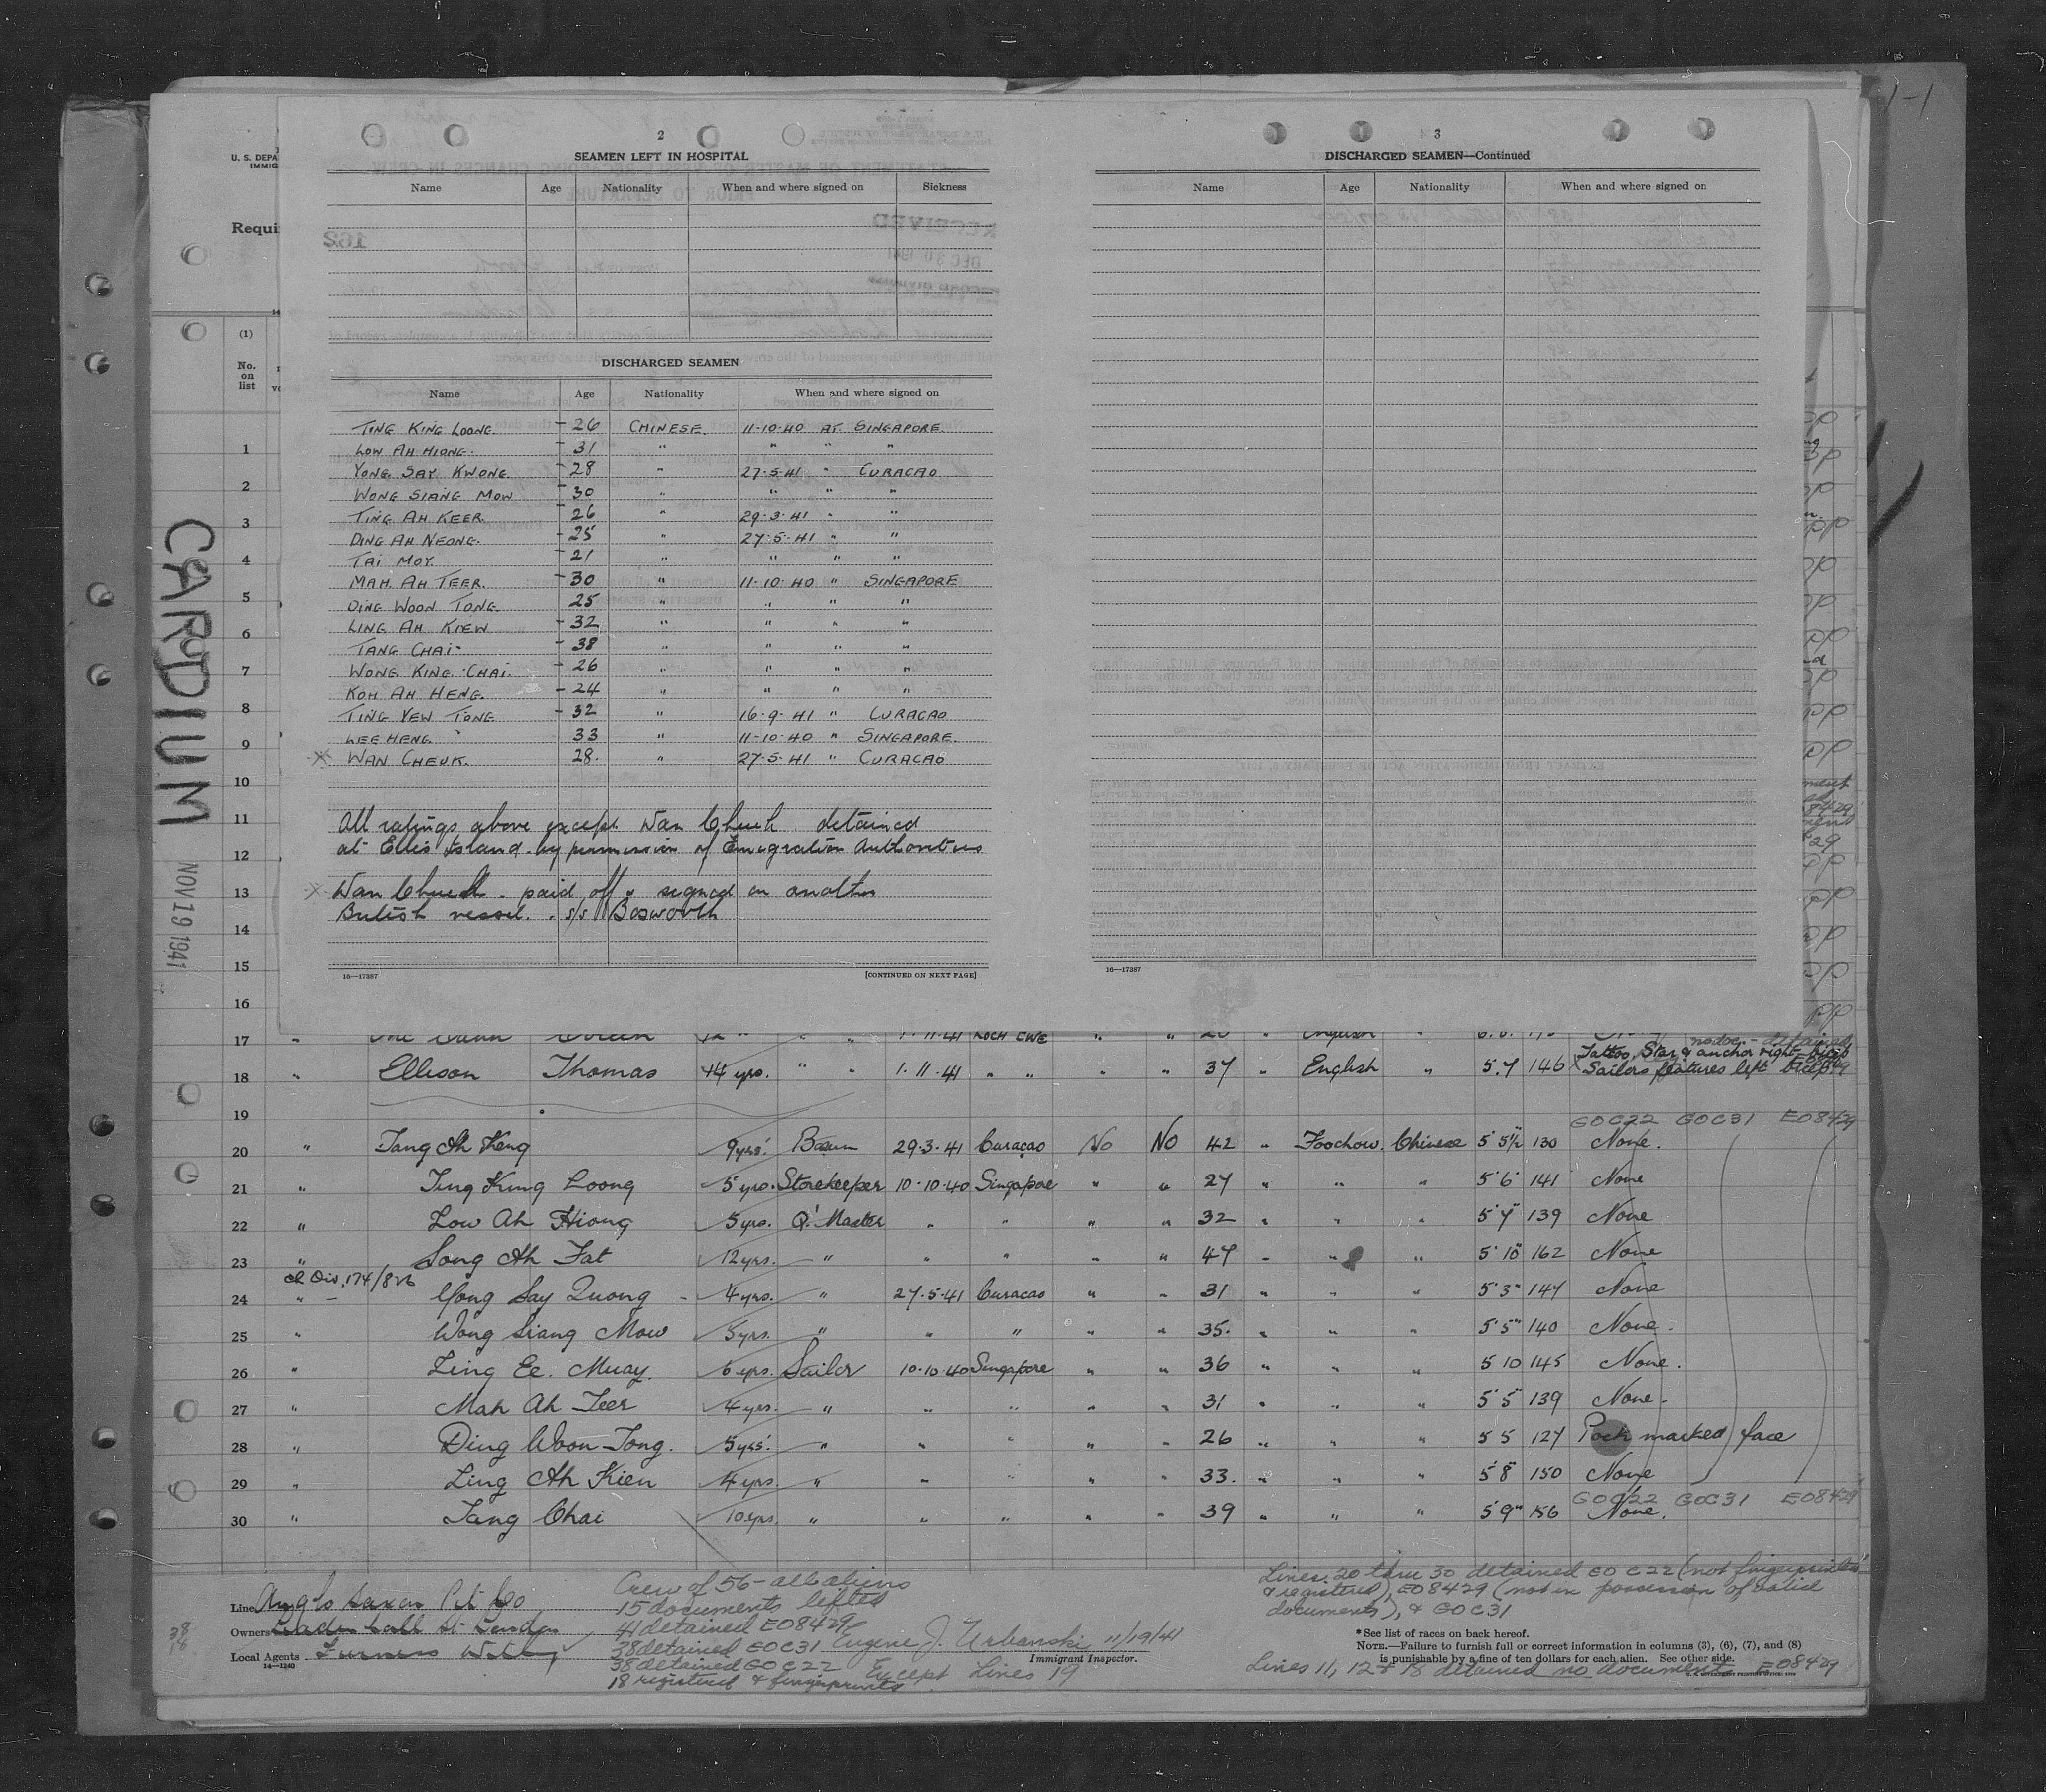 1-1
U. S. DEPA
IMMIG
Requi
2
SEAMEN LEFT IN HOSPITAL
Name Age Nationality When and where signed on Sickness
DISCHARGED SEAMEN
Name Age Nationality When and where signed on
TING KING LOONG. - 26 CHINESE. 11-10-40 AT SINGAPORE.
LOW AH HIONG. - 31 " " " "
YONG SAY KWONG. - 28 " 27-5-41 " CURACAO
WONG SIANG MOW - 30 " " " "
TING AH KEER. - 26 " 29-3-41 " "
DING AH NEONG. - 25 " 27-5-41 " "
TAI MOY. - 21 " " " "
MAH. AH TEER - 30 " 11-10-40 " SINGAPORE
DING WOON TONG. 25 " " " "
LING AH KIEW - 32 " " " "
TANG CHAI - 38 " " " "
WONG KING CHAI. - 26 " " " "
KOH AH HENG. - 24 " " " "
TING YEW TONG - 32 " 16-9-41 " CURACAO
LEE HENG. 33 " 11-10-40 " SINGAPORE.
X WAN CHEUK. 28. " 27-5-41 " CURACAO
All ratings above except Wan Cheuk detained
at Ellis Island by permission of Emigration Authorities
X Wan Cheuk - paid off & signed on another
British vessel. s/s Bosworth
16—17387 [CONTINUED ON NEXT PAGE]
3
DISCHARGED SEAMEN—Continued
Name Age Nationality When and where signed on
16—17387
CARDIUM
NOV 19 1941
(1)
No. on list
1
2
3
4
5
6
7
8
9
10
11
12
13
14
15
16
17 " 1-11-41 LOCH EWE
18 " Ellison Thomas 14 yrs. " " 1.11.41 " " " " 37 " English " 5.7 146 Tattoo, Star & anchor right bicep
Sailors features left bicep
19
GOC22 GOC31 E08429
20 " Tang Ah Keng 9yrs. Bosun 29.3.41 Curacao No No 42 " Foochow. Chinese 5' 5½ 130 None.
21 " Ting King Loong 5 yrs. Storekeeper 10.10.40 Singapore " " 27 " " " 5'6" 141 None
22 " Low Ah Hiong 5yrs. Q. Master " " " " 32 " " " 5'7" 139 None
23 " Song Ah Fat 12yrs. " " " " " 47 " " " 5'10" 162 None
174/826
24 " Yong Say Quong - 4yrs. " 27.5.41 Curacao " " 31 " " " 5'3" 147 None
25 " Wong Siang Mow 5yrs. " " " " " 35. " " " 5'5" 140 None.
26 " Ling Ee. Muay. 6 yrs. Sailor 10.10.40 Singapore " " 36 " " " 5 10 145 None.
27 " Mah Ah Teer 4yrs. " " " " " 31 " " " 5'5" 139 None.
28 " Ding Woon Tong. 5yrs. " " " " " 26 " " " 5 5 127 Pock marked face
29 " Ling Ah Kien 4 yrs. " " " " " 33. " " " 5'8" 150 None
GOC22 GOC31 E08429
30 " Tang Chai 10yrs. " " " " " 39 " " " 5'9" 156 None.
Line Anglo Saxon Pet Co
Owners Leaden hall St London
Local Agents Furness Withy
14—1240
Crew of 56 - all aliens
15 documents lifted
41 detained E08429
38 detained EOC31
38 detained GOC22
18 registered & fingerprinted
Eugene J. Urbanski 11/19/41
Immigrant Inspector.
Except Lines 19
Lines 20 thru 30 detained EO C22 (not fingerprinted
& registered), E08429 (not in possession of valid
documents), & GOC31
*See list of races on back hereof.
NOTE.—Failure to furnish full or correct information in columns (3), (6), (7), and (8)
is punishable by a fine of ten dollars for each alien. See other side.
Lines 11, 12 & 18 detained no documents E08429